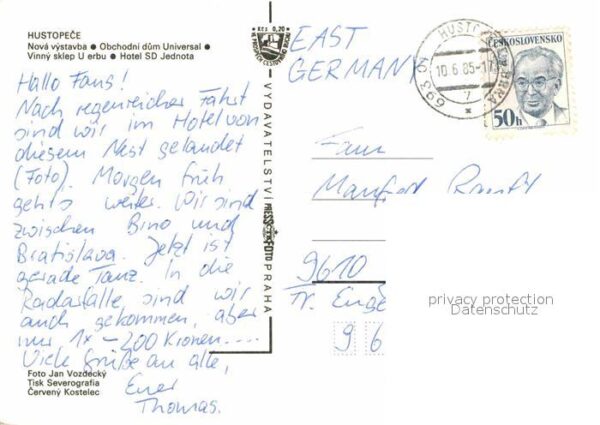 HUSTOPEČE
Nová výstavba ● Obchodní dům Universal ●
Vinný sklep U erbu ● Hotel SD Jednota
Hallo Fans!
Nach regenreicher Fahrt
sind wir im Hotel von
diesem Nest gelandet
(Foto). Morgen früh
geht's weiter. Wir sind
zwischen Brno und
Bratislava. Jetzt ist
gerade Tanz. In die
Radarfalle sind wir
auch gekommen, aber
nur 1x – 200 Kronen....
Viele Grüße an alle,
Euer
Thomas.
Foto Jan Vozdecký
Tisk Severografia
Červený Kostelec
Kčs 0,20
VYDAVATELSTVÍ
PRESSFOTO
PRAHA
EAST
GERMANY
693 01 HUSTOPEČE
10.6.85-17
ČESKOSLOVENSKO
50h
Fam
Manfred
9610
9 6
privacy protection
Datenschutz